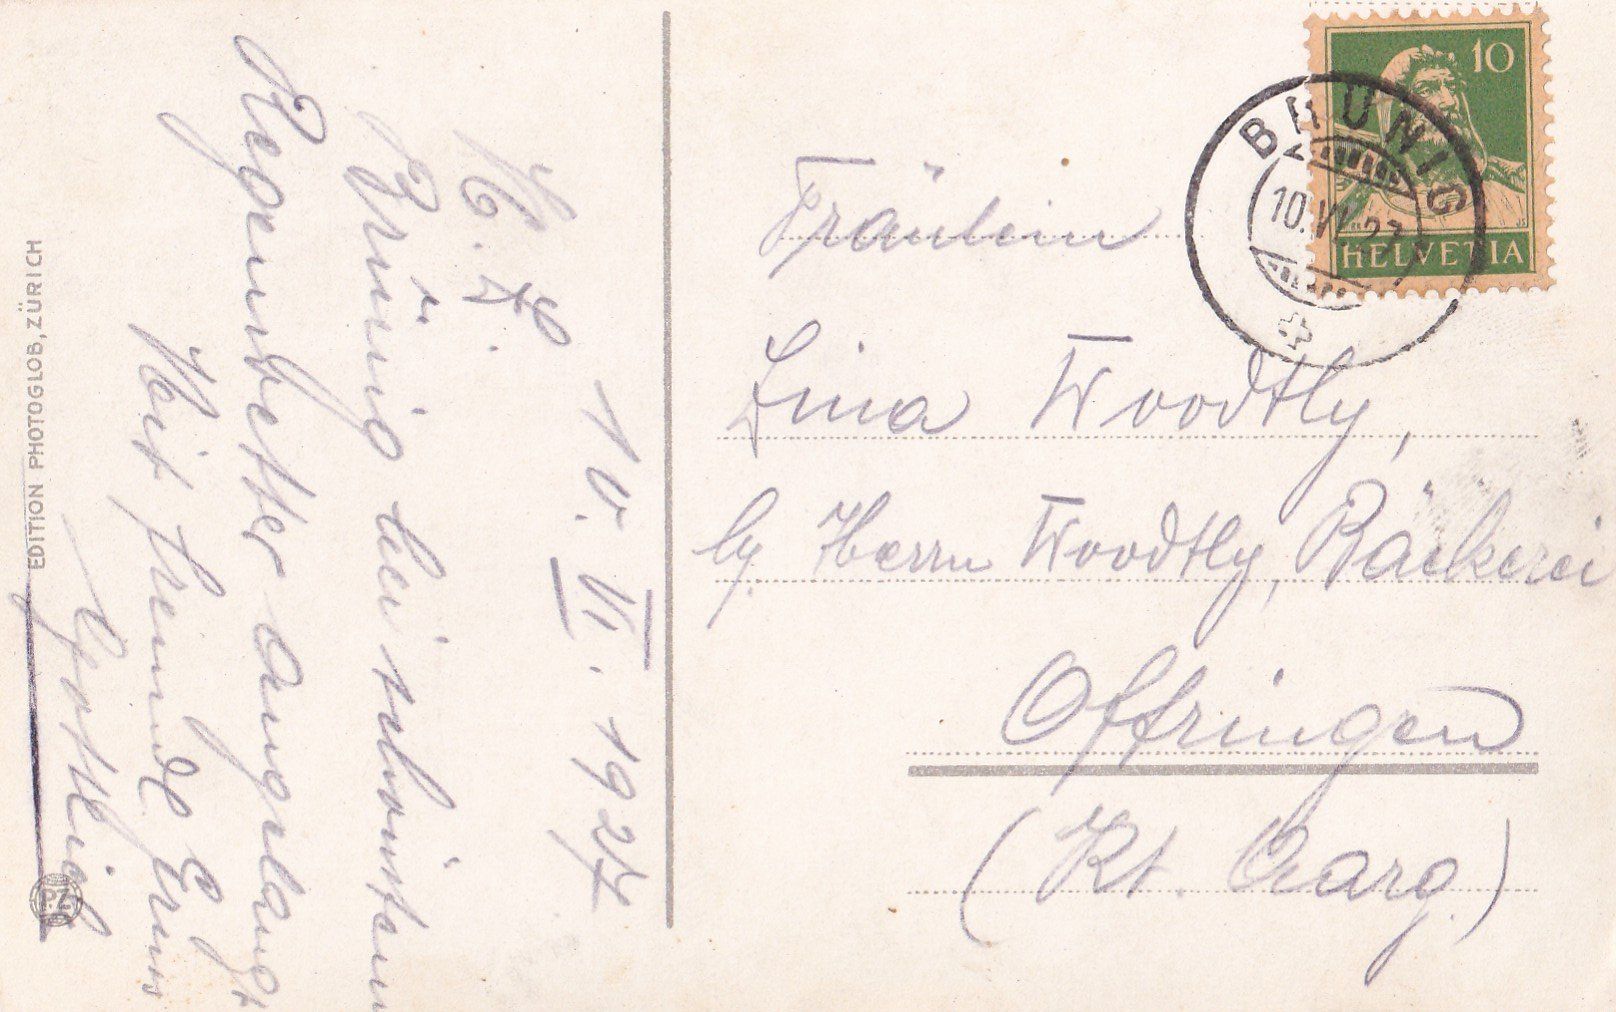 10. VI. 1927
M. L.
Brünig bei schönstem
Regenwetter angelangt
Mit freundl. Gruss
Gottlieb
EDITION PHOTOGLOB, ZÜRICH
PZ
10
HELVETIA
BRÜNIG
10.VI.27
Fräulein
Lina Woodtly,
by. Herrn Woodtly, Bäckerei
Offringen
(Kt. Aarg.)